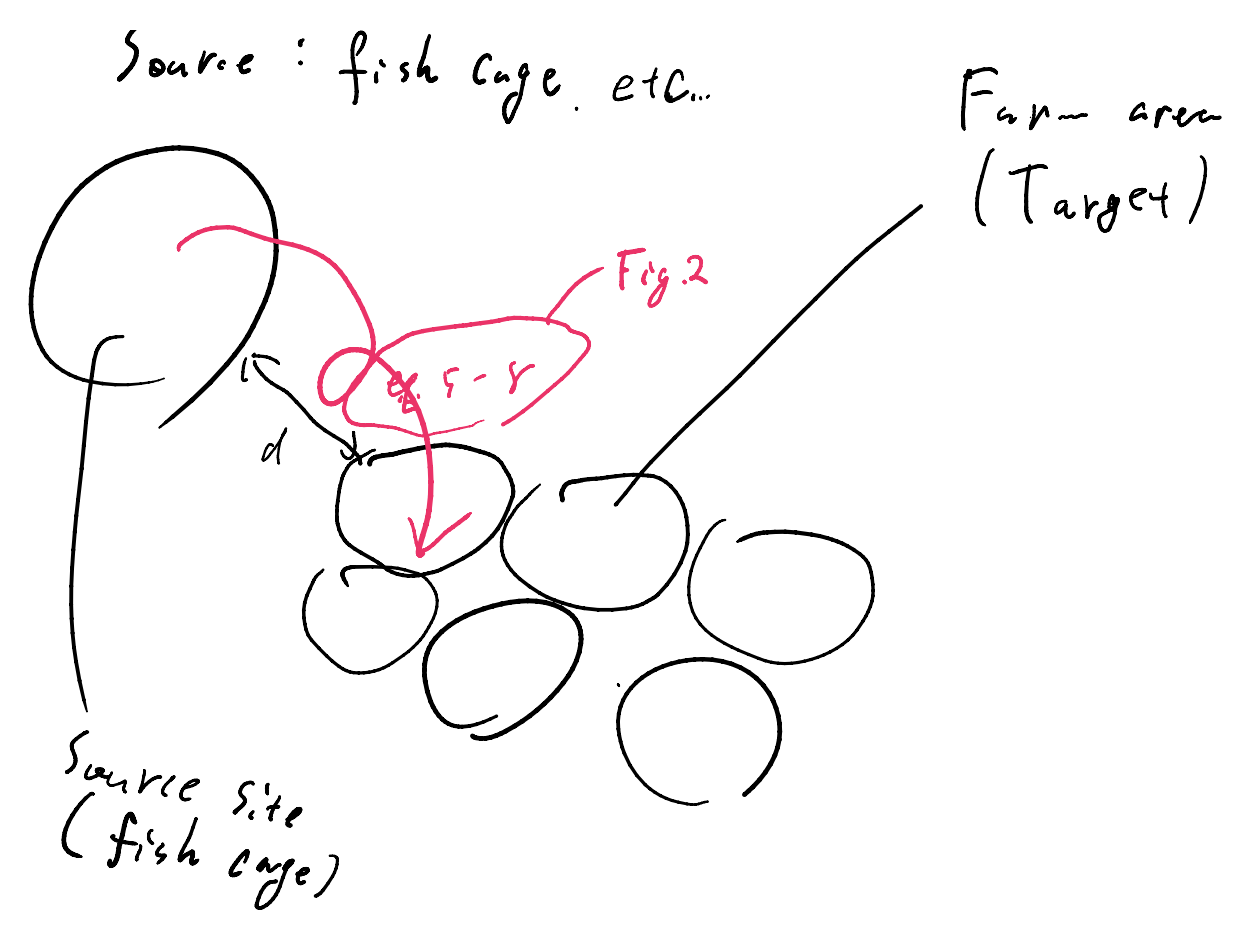 Source : fish cage. etc...
Farm area
(Target)
Fig.2
eq. 5-8
d
Source site
(fish cage)